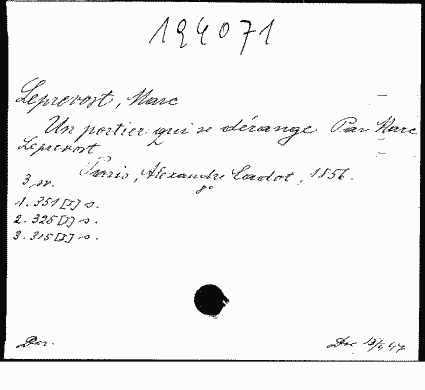 194071
Leprevost, Marc
Un portier qui se dérange Par Marc
Leprevost
Paris, Alexandre Cadot, 1856.
8°
3 sv.
1. 351 [I] s.
2. 325 [I] s.
3. 315 [I] s.
Dar.